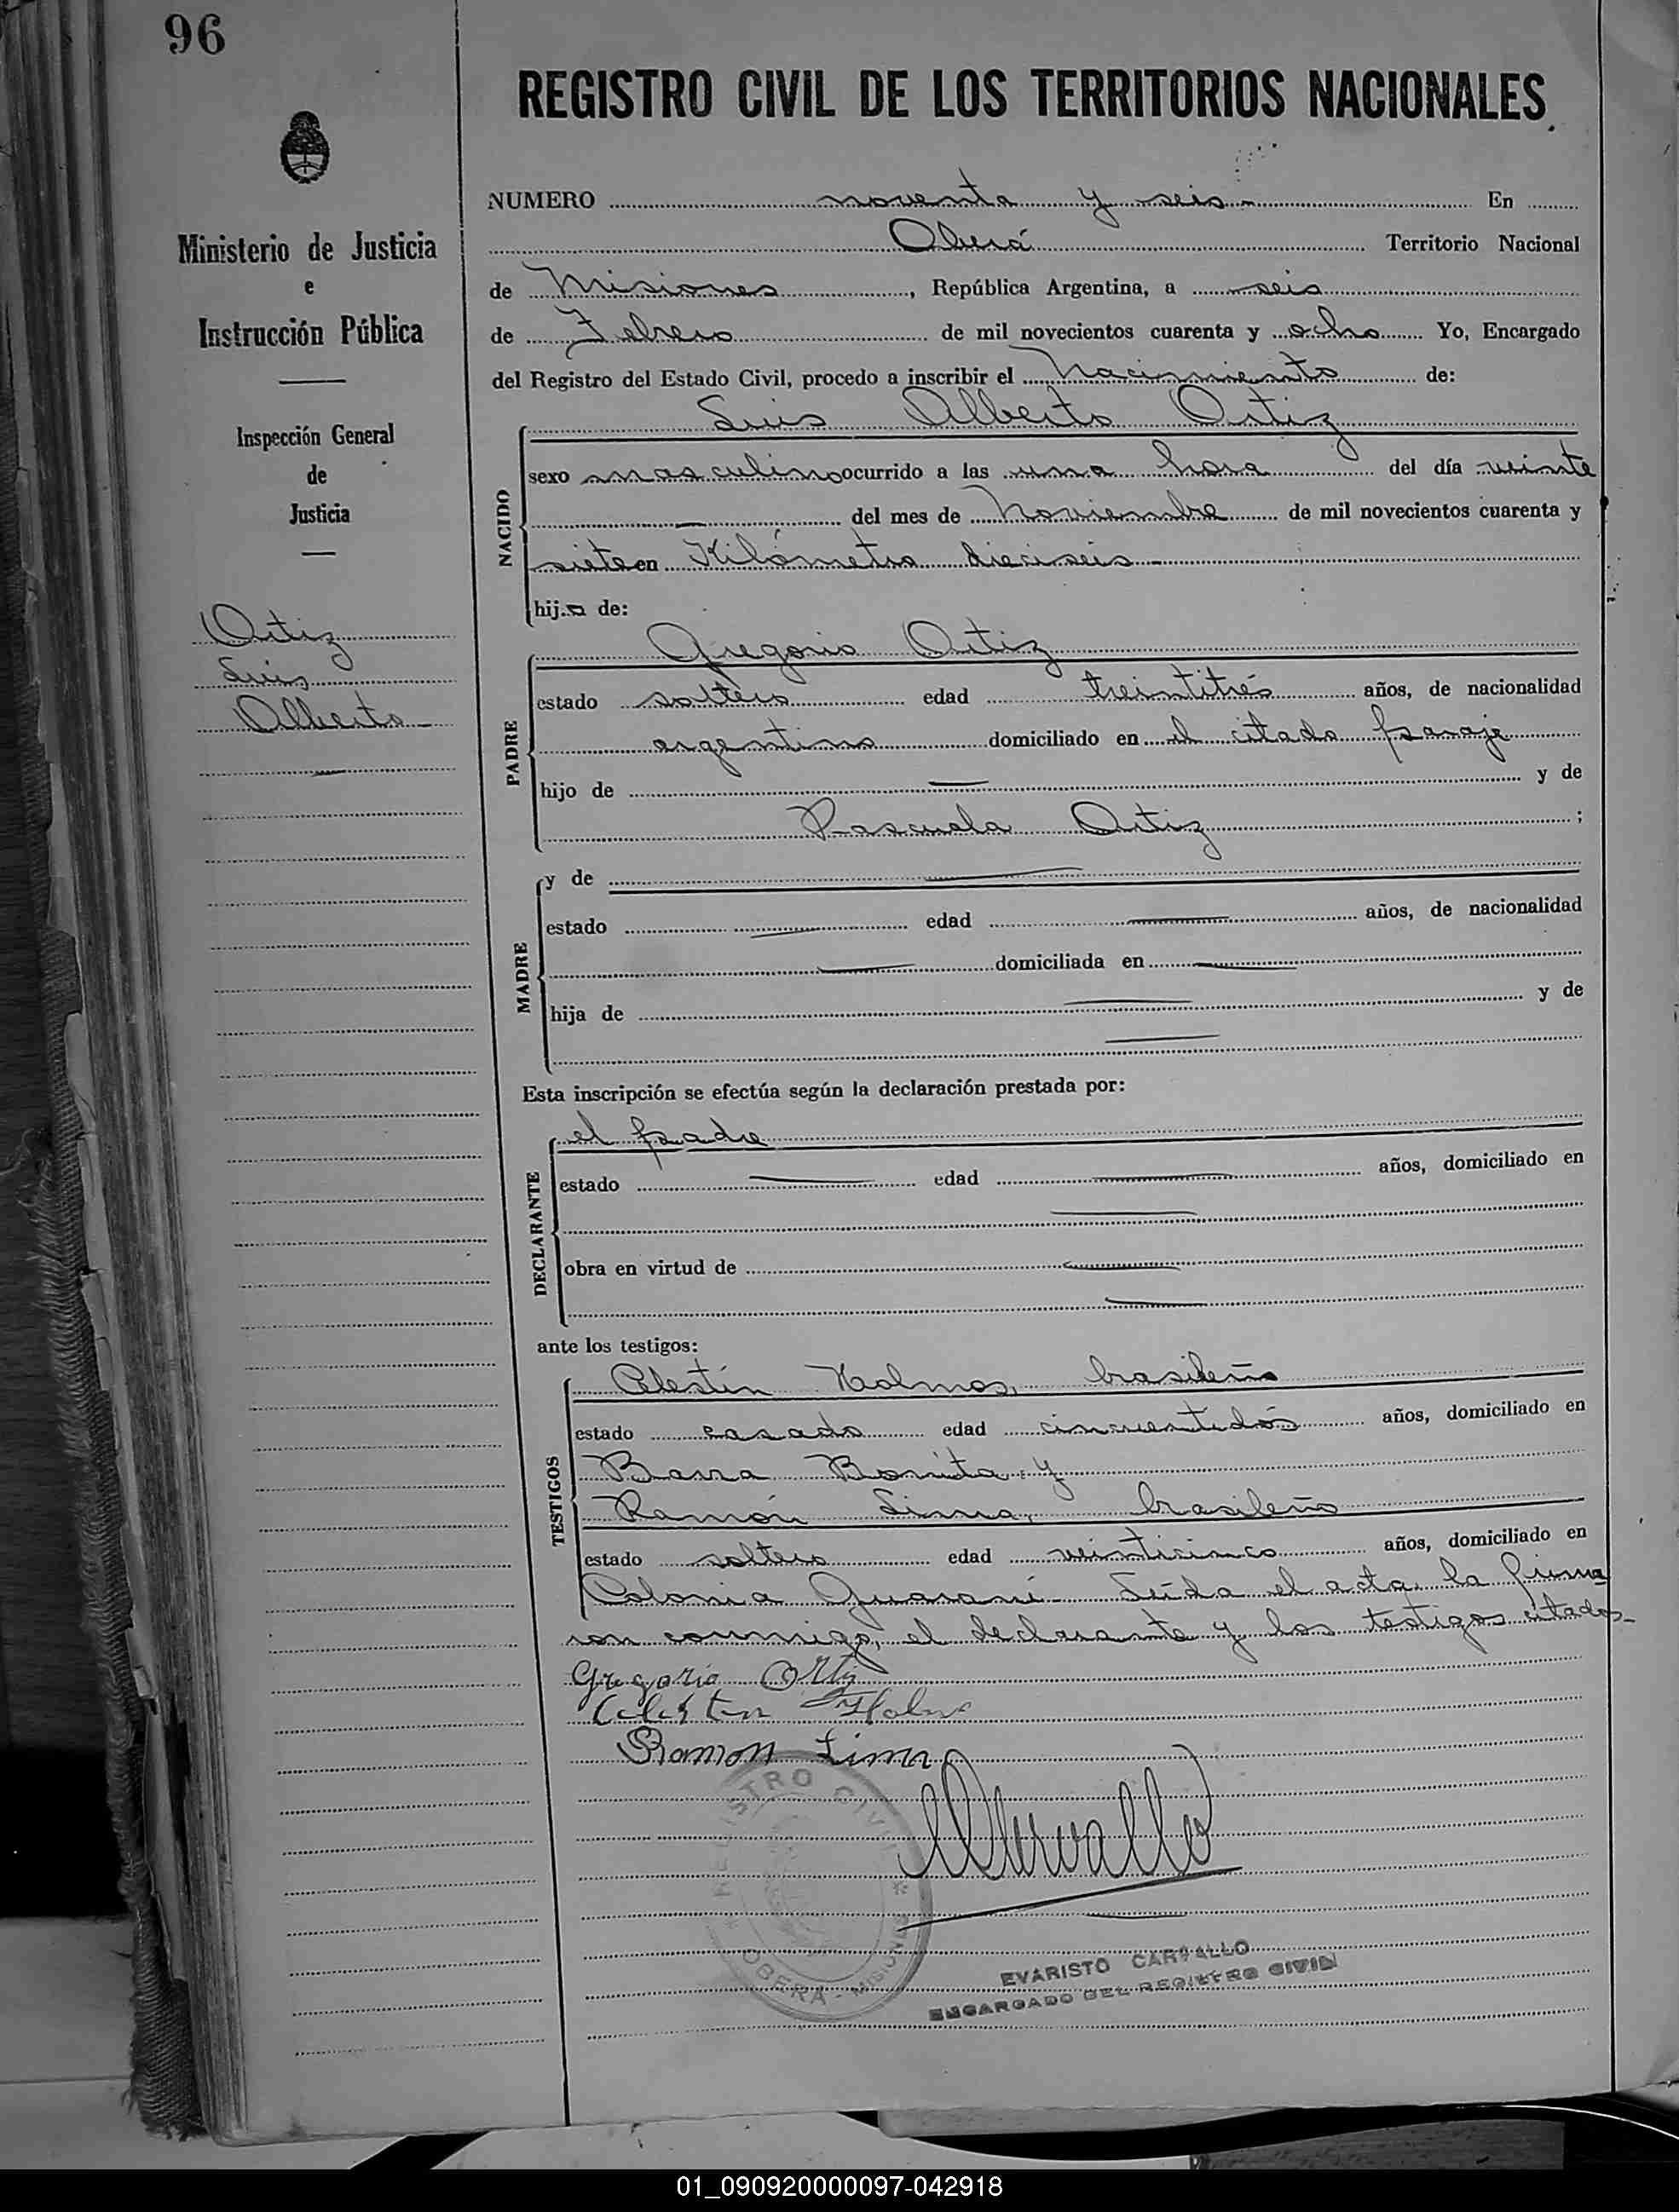 96
REGISTRO CIVIL DE LOS TERRITORIOS NACIONALES
Ministerio de Justicia
e
Instrucción Pública
Inspección General
de
Justicia
Ortiz
Luis
Alberto
NUMERO noventa y seis - En
Oberá Territorio Nacional
de Misiones, República Argentina, a seis
de Febrero de mil novecientos cuarenta y ocho Yo, Encargado
del Registro del Estado Civil, procedo a inscribir el Nacimiento de:
Luis Alberto Ortiz
NACIDO
sexo masculino ocurrido a las una hora del día veinte
— del mes de Noviembre de mil novecientos cuarenta y
siete en Kilómetro dieciseis -
hijo de:
PADRE
Gregorio Ortiz
estado soltero edad treintitrés años, de nacionalidad
argentino domiciliado en el citado paraje
hijo de — y de
Pascuala Ortiz ;
MADRE
y de —
estado — edad — años, de nacionalidad
— domiciliada en —
hija de — y de
—
Esta inscripción se efectúa según la declaración prestada por:
DECLARANTE
el padre
estado — edad — años, domiciliado en
—
obra en virtud de —
—
ante los testigos:
TESTIGOS
Celestín Holmos, brasileño
estado casado edad cincuentidós años, domiciliado en
Barra Bonita y
Ramón Lima, brasileño
estado soltero edad veinticinco años, domiciliado en
Colonia Guaraní - Leída el acta, la firma
ron conmigo, el declarante y los testigos citados-
Gregorio Ortiz
Celestin
Ramon Lima
Carvallo
REGISTRO CIVIL
OBERA - MISIONES
EVARISTO CARVALLO
ENCARGADO DEL REGISTRO CIVIL
01_090920000097-042918